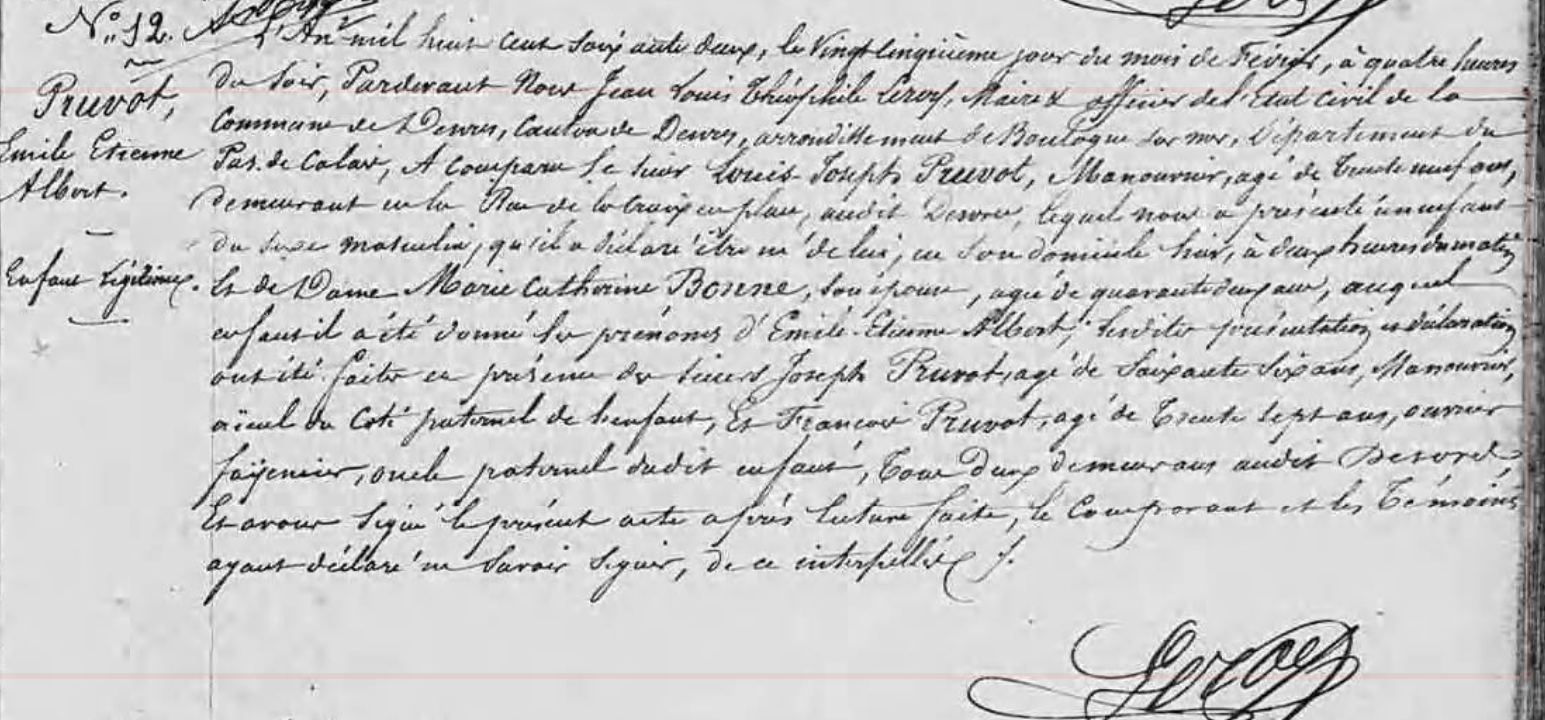 N° 12.
Pruvot,
Emile Etienne
Albert.
Enfant légitime.
L'An mil huit cent soixante deux, le Vingt cinquième jour du mois de Février, à quatre heures
du soir, Pardevant Nous Jean Louis Théophile Leroy, Maire & officier de l'Etat Civil de la
Commune de Desvres, Canton de Desvres, arrondissement de Boulogne sur mer, Département du
Pas-de-Calais, A comparu le sieur Louis Joseph Pruvot, Manouvrier, agé de trente neuf ans,
demeurant en la Rue de la Croix en plan, audit Desvres, lequel nous a présenté un enfant
du sexe masculin, qu'il a déclaré être né de lui, en son domicile hier, à deux heures du matin
Et de Dame Marie Catherine Bonne, son épouse, agée de quarante deux ans, auquel
enfant il a été donné les prénoms d'Emile-Etienne Albert; lesdites présentation et déclaration
ont été faites en présence des sieurs Joseph Pruvot, agé de soixante six ans, Manouvrier,
aïeul du Coté paternel de l'enfant, Et François Pruvot, agé de trente sept ans, ouvrier
fayencier, oncle paternel dudit enfant, tous deux demeurans audit Desvres,
Et avons signé le présent acte après lecture faite, le Comparant et les Témoins
ayant déclaré ne savoir signer, de ce interpellés /.
Leroy